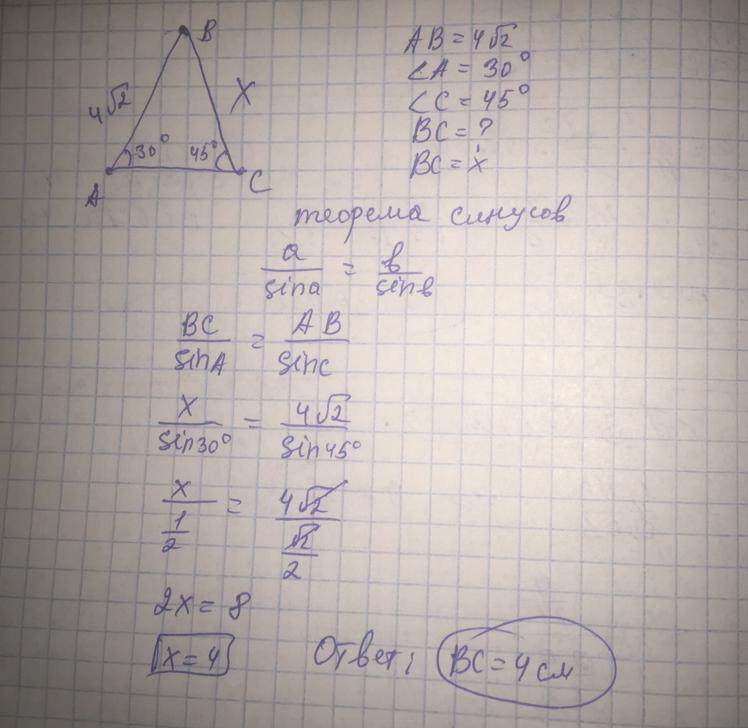 B
4√2
X
30°
45°
A
C
AB = 4√2
∠A = 30°
∠C = 45°
BC = ?
BC = x
теорема синусов
a/sin a = b/sin b
BC/sin A = AB/sin C
x/sin 30° = 4√2/sin 45°
x/(1/2) = 4√2/(√2/2)
2x = 8
x = 4
Ответ: BC = 4 см